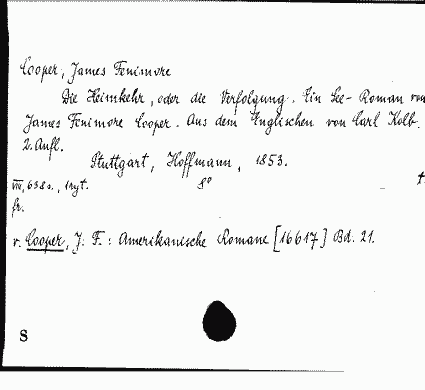 Cooper, James Fenimore
Die Heimkehr, oder die Verfolgung. Ein See-Roman von
James Fenimore Cooper. Aus dem Englischen von Carl Kolb.
2. Aufl.
Stuttgart, Hoffmann, 1853.
VIII, 638 s., 1 ryt. 8°
fr.
v. Cooper, J. F.: Amerikanische Romane [16617] Bd. 21.
S